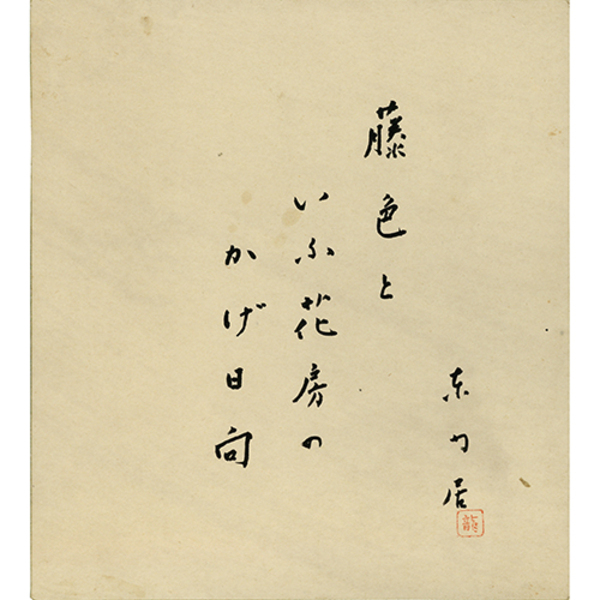 東門居
龍
藤色と
いふ花房の
かげ日向